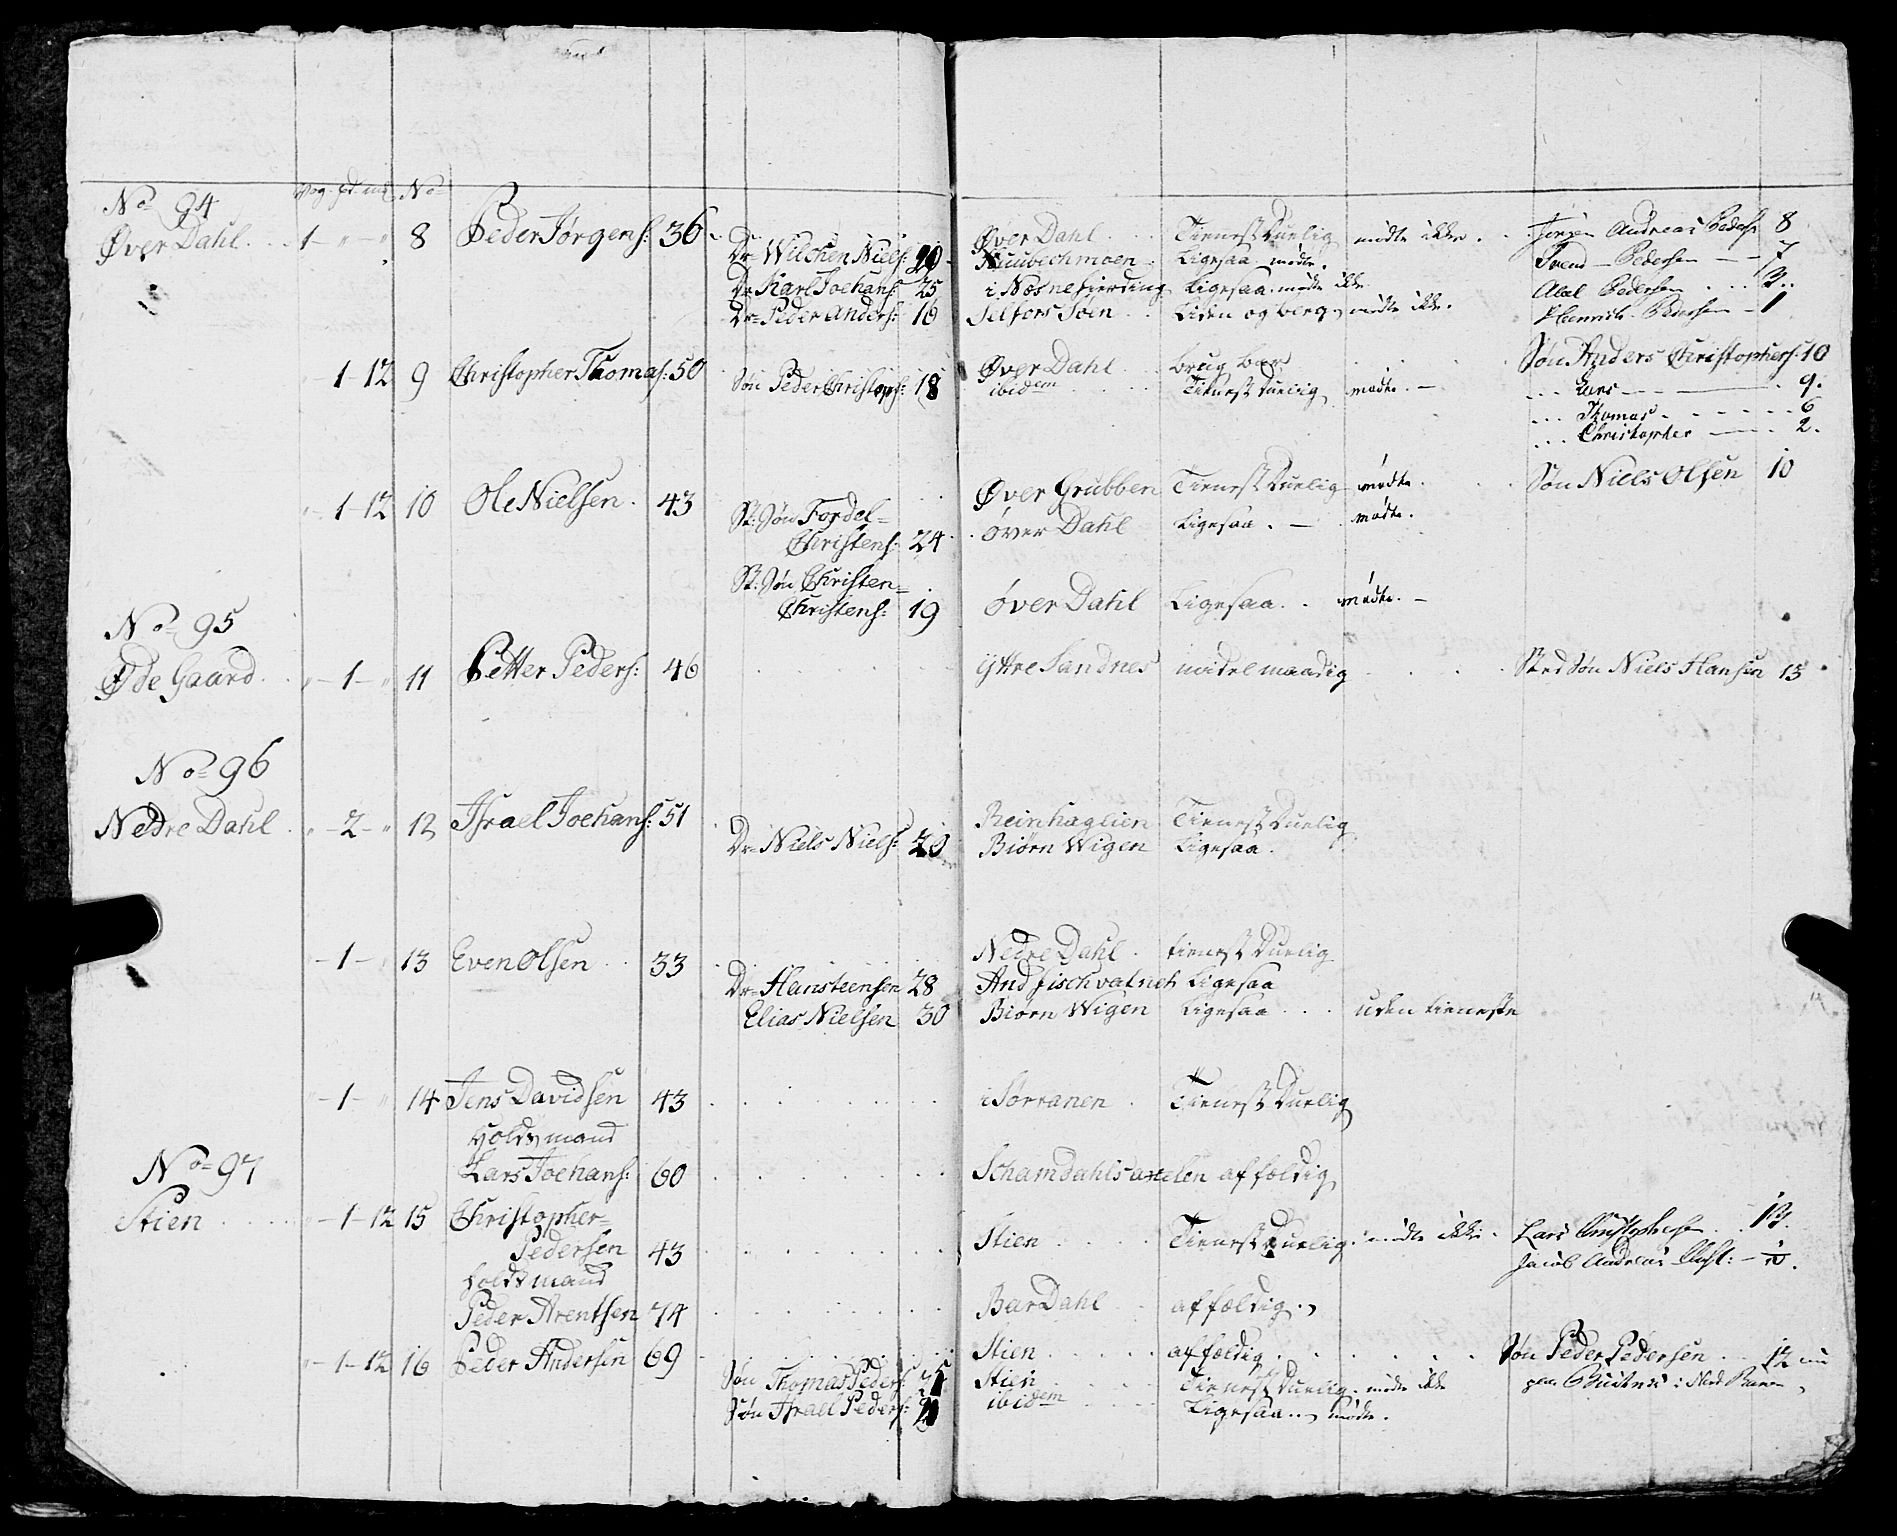 No 94 Vog pd mk No
Øver Dahl 1 - " - " 8 Peder Jørgens: 36 Øver Dahl Tienest Duelig mødte ikke Jørgen Andreas Peders: 8
Dr Wilchen Niels: 20 Ligesaa mødte. Svend Pedersen 7
Dr Karl Joehans: 25 i Næsnefierding Ligesaa mødte ikke Abel Pedersen 3
Dr Peder Anders: 16 Selfors Søen Liden og berg. mødte ikke. Henrich Pedersen 1
1-12 9 Christopher Thomas: 50 Øver Dahl brug bar Søn Anders Christophers: 10
Søn Peder Christoph: 18 ibidem Tienest Duelig mødte Lars 9.
Thomas 6
Christopher 2.
1-12 10 Ole Nielsen. 43 Øver Grubben Tienest Duelig mødte Søn Niels Olsen 10
St: Søn Fordel= øver Dahl Ligesaa. mødte.
Christens: 24
St: Søn Christen=
Christens: 19 øver Dahl Ligesaa. mødte.
No 95
Øde Gaard " -1- " 11 Petter Peders: 46 ÿttre Sandnes midelmaadig Sted Søn Niels Hansen 15
No 96
Nedre Dahl " -2- " 12 Israel Joehans: 51 Reinhaglien Tienest Duelig
Dr Niels Niels: 20 Biørn Wigen Ligesaa.
-1- 13 Even Olsen 33 Nedre Dahl tienest Duelig
Dr Hansteensen 28 And fischvatnet Ligesaa
Elias Nielsen 30 Biørn Wigen Ligesaa uden tieneste
-1- " 14 Jens Davidsen 43 i Sørranen Tienest Duelig
Holdsmand
No 97 Lars Joehans: 60 Schamdahls affældig
Stien " -1-12 15 Christopher=
Pedersen 43 Stien Tienest Duelig mødte ikke Lars Christophersen 13.
Holdsmand Jacob Andreas Chrst: 10.
Peder Arentsen 74 Bar Dahl affældig.
" -1-12 16 Peder Andersen 69 Stien affældig Søn Peder Pedersen 12
Søn Thomas Peders: Stien Tienest Duelig. mødte ikke
Søn Israel Peders: ibidem Ligesaa mødte.